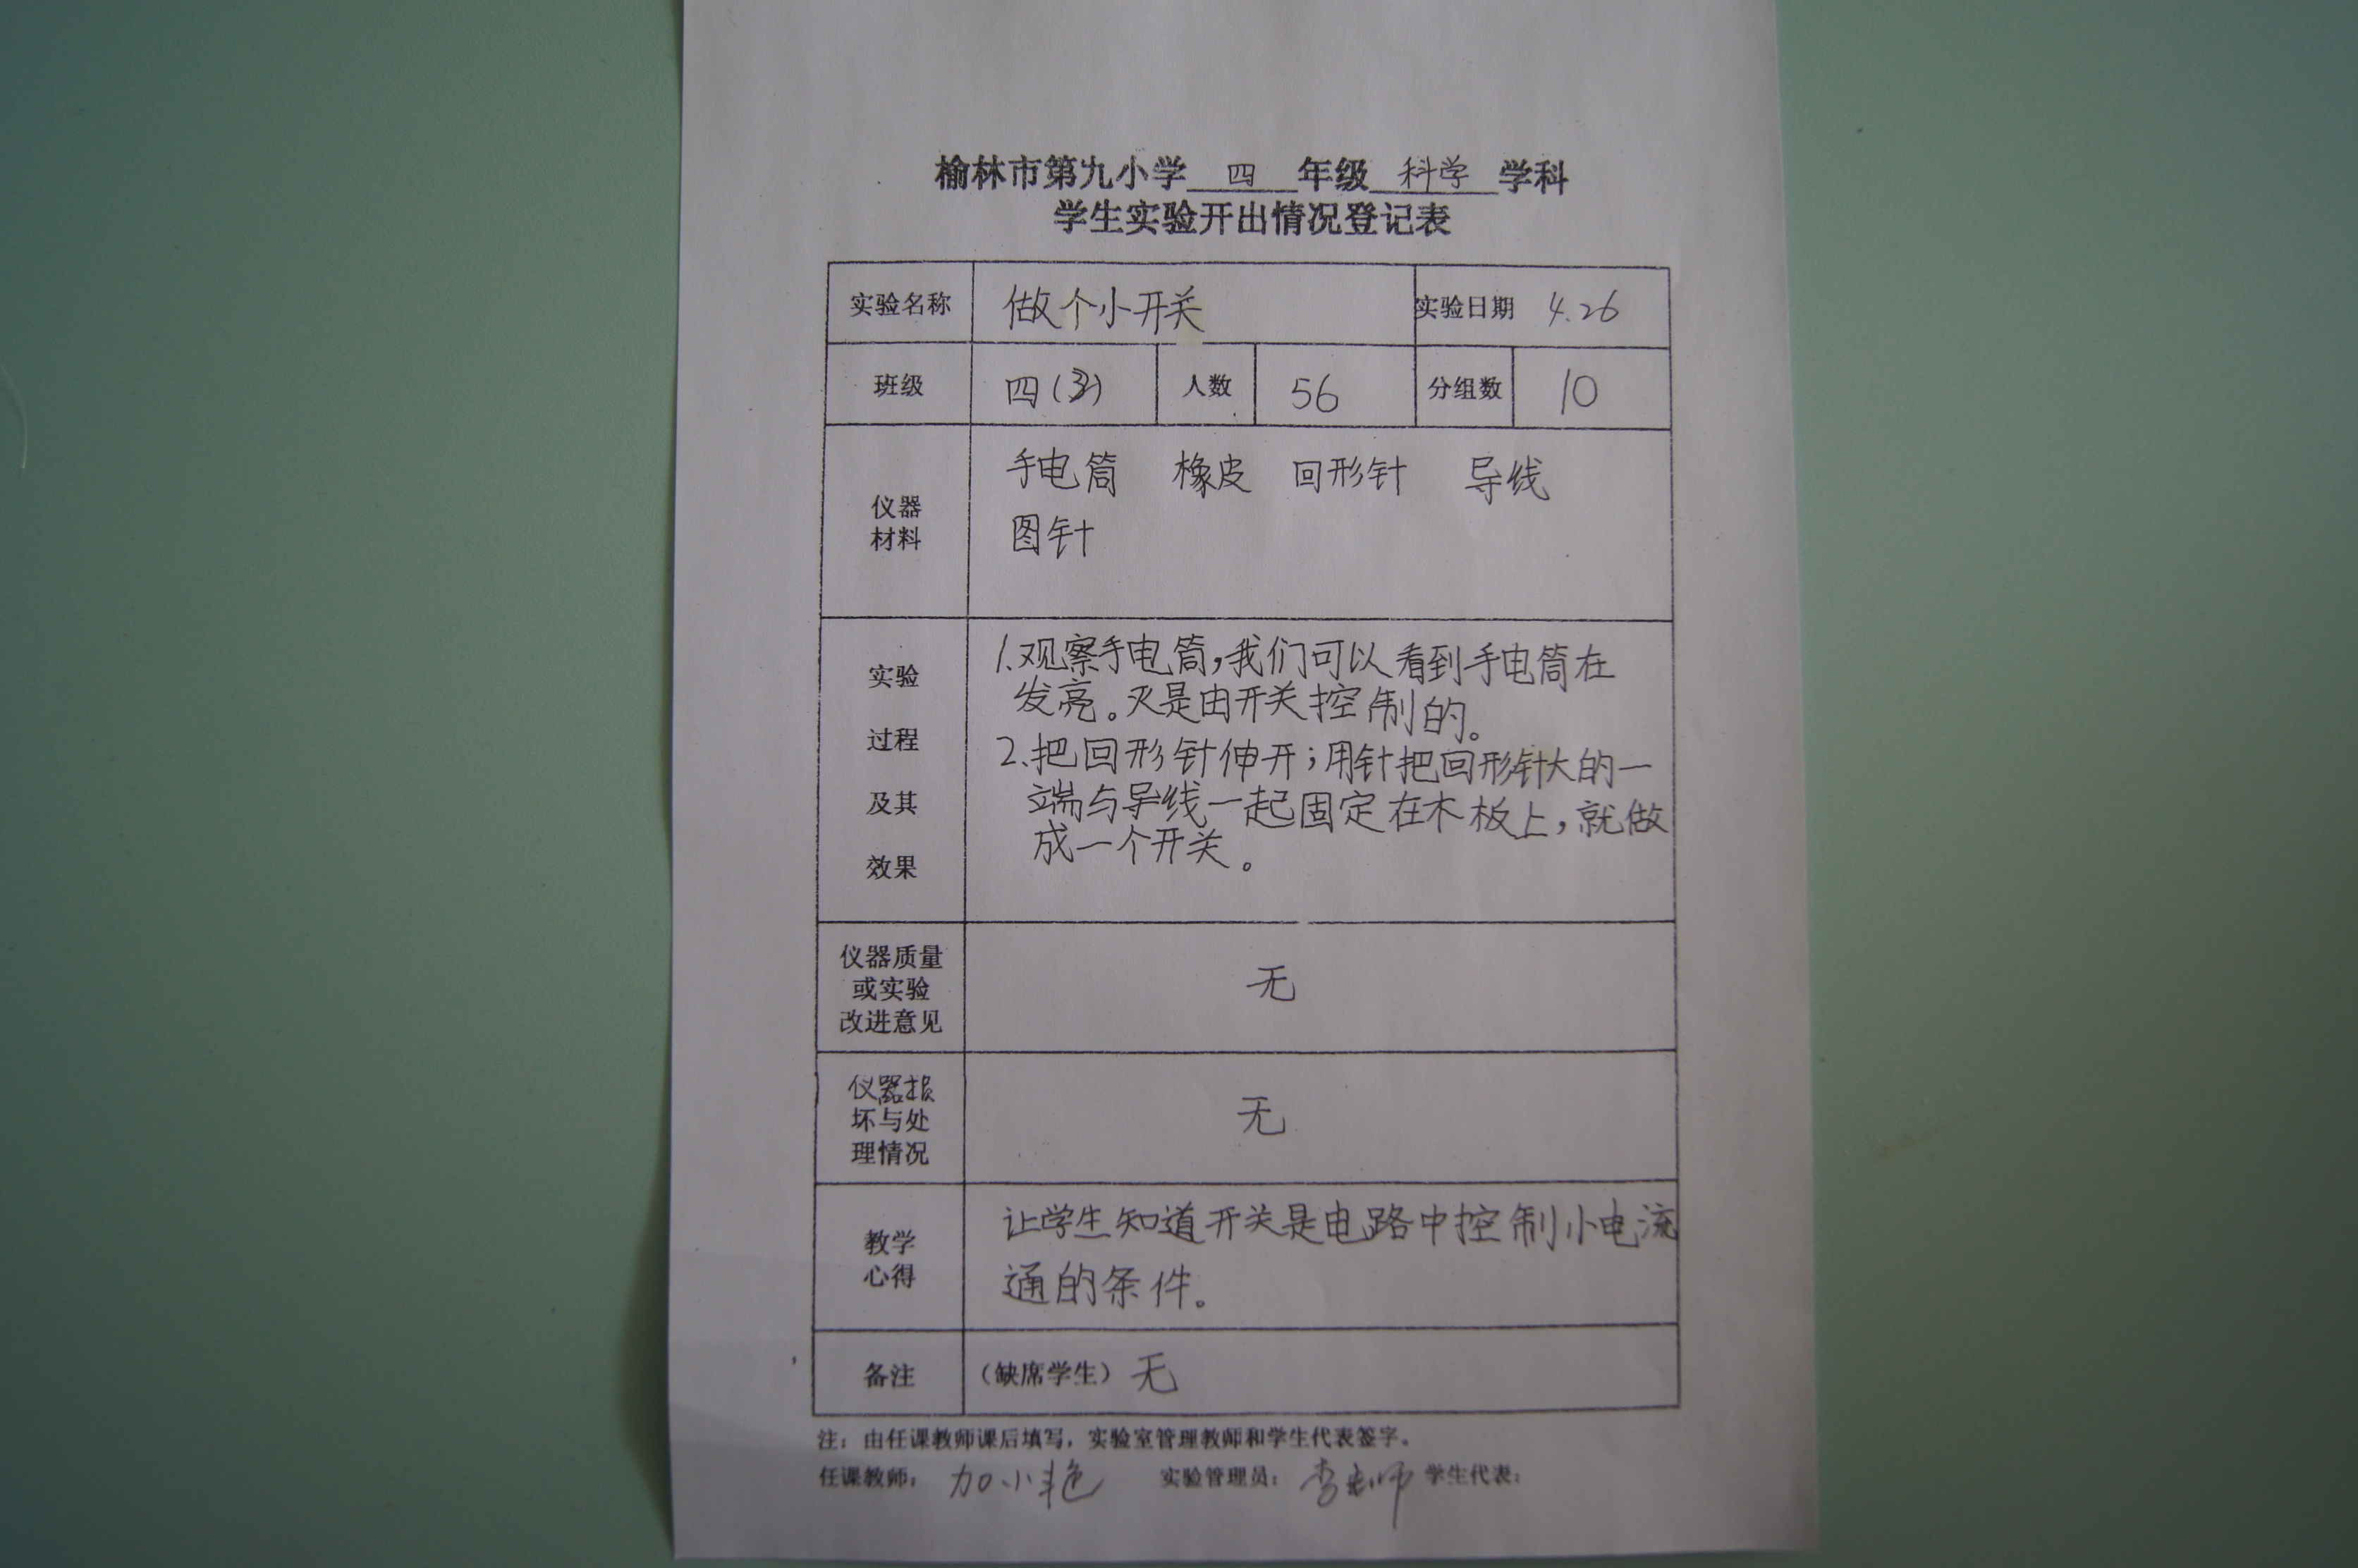 榆林市第九小学 四 年级 科学 学科
学生实验开出情况登记表
实验名称 做个小开关 实验日期 4.26
班级 四(3) 人数 56 分组数 10
仪器
材料
手电筒 橡皮 回形针 导线
图钉
实验
过程
及其
效果
1.观察手电筒,我们可以看到手电筒在
发亮。灭是由开关控制的。
2.把回形针伸开;用针把回形针大的一
端与导线一起固定在木板上,就做
成一个开关。
仪器质量
或实验
改进意见
无
仪器损
坏与处
理情况
无
教学
心得
让学生知道开关是电路中控制小电流
通的条件。
备注 (缺席学生) 无
注:由任课教师课后填写,实验室管理教师和学生代表签字。
任课教师: 加小艳 实验管理员: 李 师 学生代表: